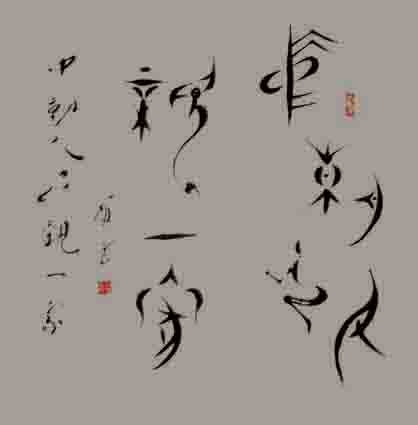 中朝人民
親一家
中朝人民親一家